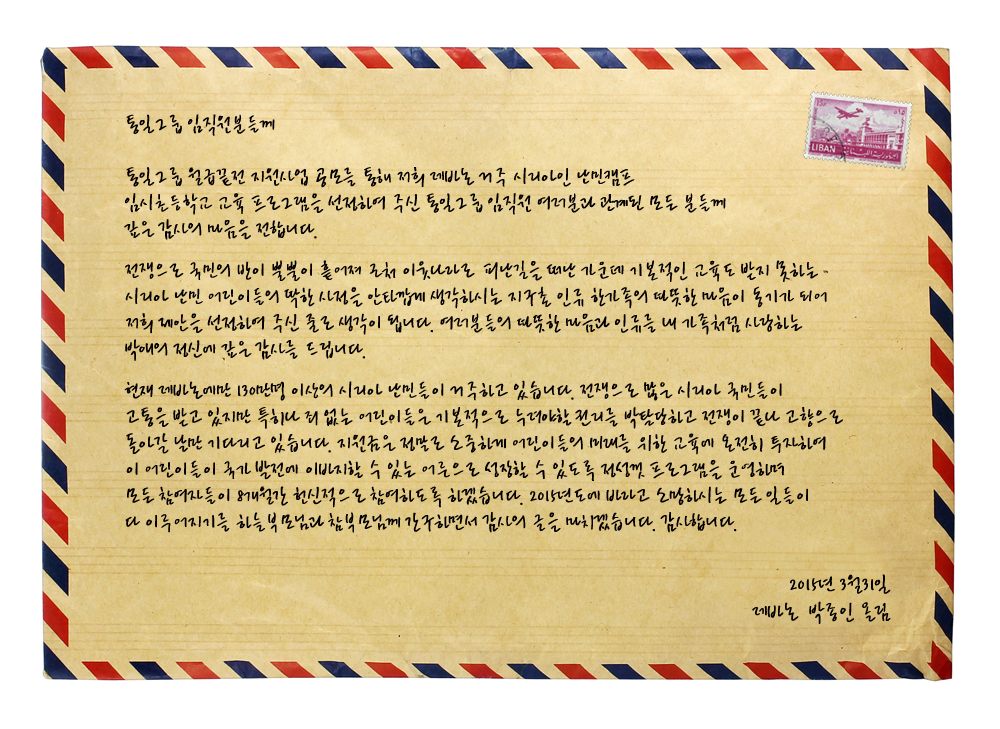 통일그룹 임직원분들께
LIBAN
통일그룹 월급끝전 지원사업 공모를 통해 저희 레바논 거주 시리아인 난민캠프
임시초등학교 교육 프로그램을 선정하여 주신 통일그룹 임직원 여러분과 관계된 모든 분들께
깊은 감사의 마음을 전합니다.
전쟁으로 국민의 반이 뿔뿔이 흩어져 근처 이웃나라로 피난길을 떠난 가운데 기본적인 교육도 받지 못하는
시리아 난민 어린이들의 딱한 사정을 안타깝게 생각하시는 지구촌 인류 한가족의 따뜻한 마음이 동기가 되어
저희 제안을 선정하여 주신 줄로 생각이 됩니다. 여러분들의 따뜻한 마음과 인류를 내 가족처럼 사랑하는
박애의 정신에 깊은 감사를 드립니다.
현재 레바논에만 130만명 이상의 시리아 난민들이 거주하고 있습니다. 전쟁으로 많은 시리아 국민들이
고통을 받고 있지만 특히나 죄 없는 어린이들은 기본적으로 누려야할 권리를 박탈당하고 전쟁이 끝나 고향으로
돌아갈 날만 기다리고 있습니다. 지원금은 정말로 소중하게 어린이들의 미래를 위한 교육에 온전히 투자하여
이 어린이들이 국가 발전에 이바지할 수 있는 어른으로 성장할 수 있도록 정성껏 프로그램을 운영하며
모든 참여자들이 8개월간 헌신적으로 참여하도록 하겠습니다. 2015년도에 바라고 소망하시는 모든 일들이
다 이루어지기를 하늘부모님과 참부모님께 간구하면서 감사의 글을 마치겠습니다. 감사합니다.
2015년 3월31일
레바논 박종인 올림